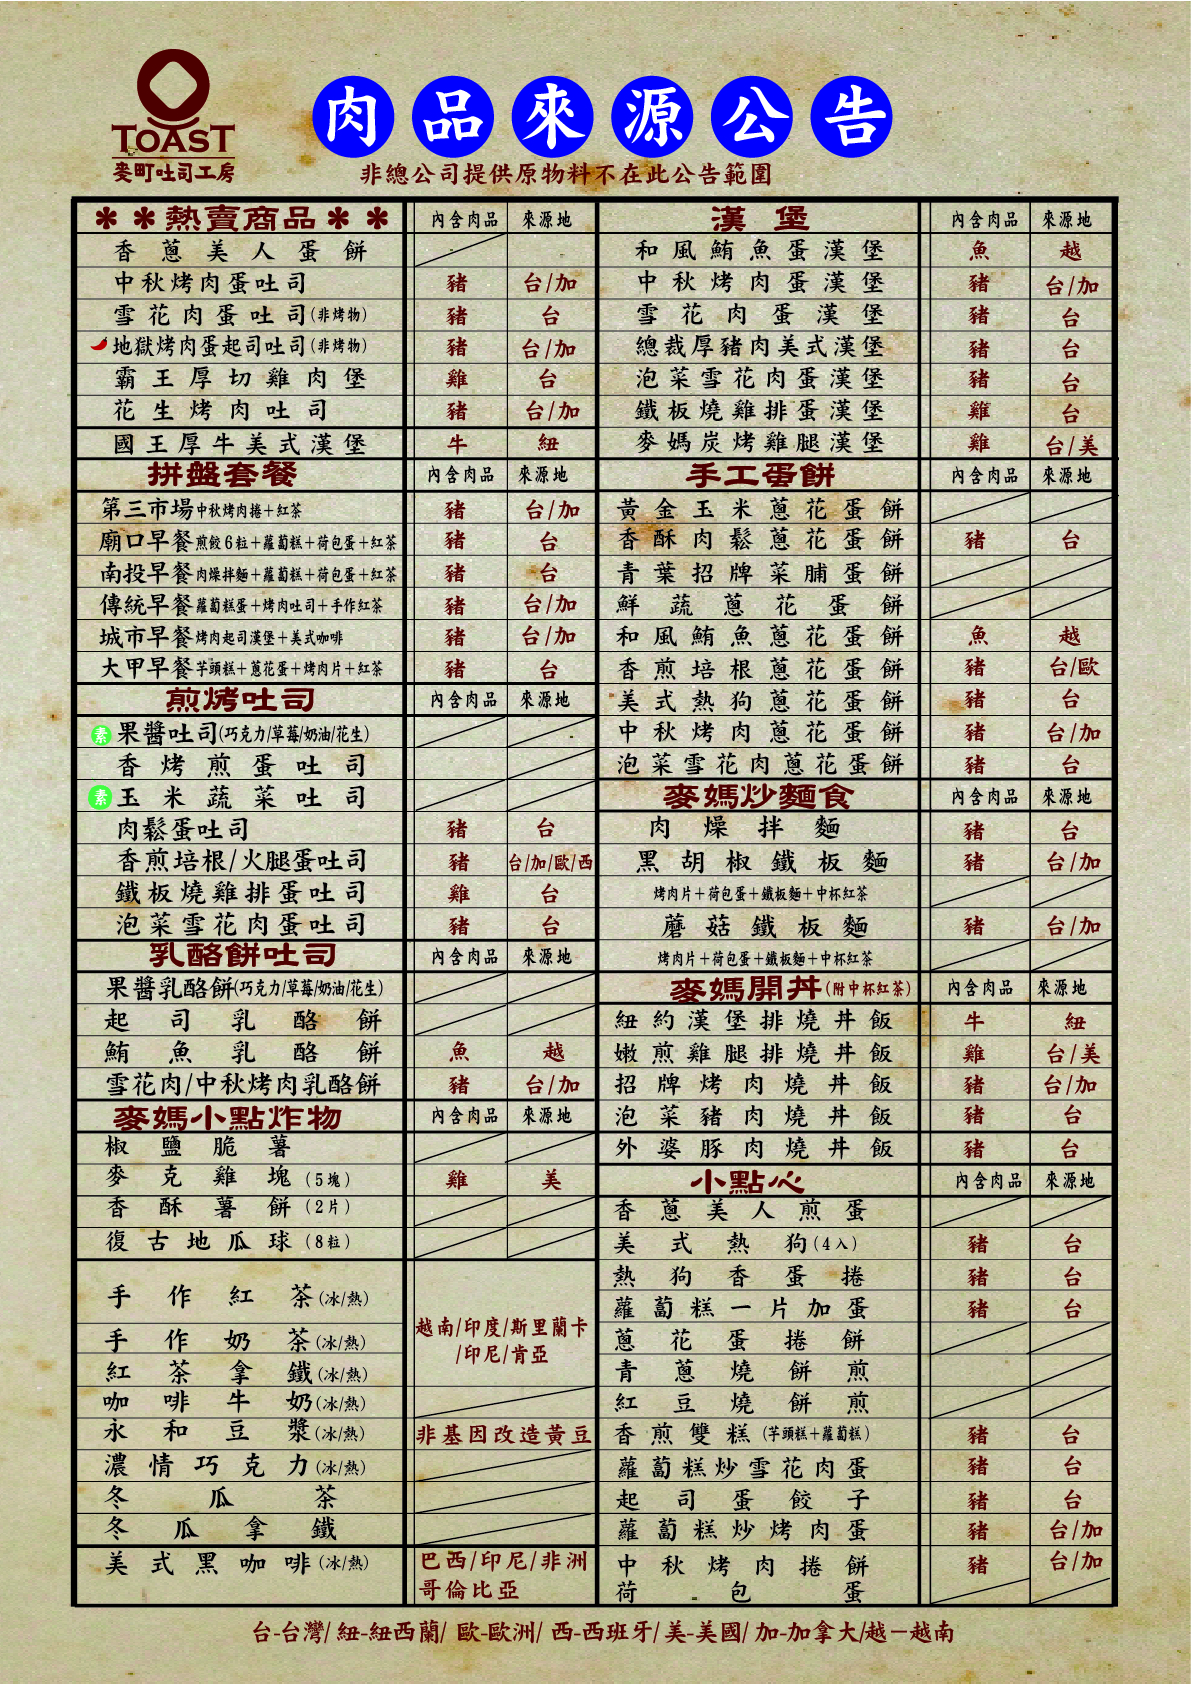 TOAST
麥町吐司工房
肉品來源公告
非總公司提供原物料不在此公告範圍
＊＊熱賣商品＊＊ 內含肉品 來源地
香蔥美人蛋餅
中秋烤肉蛋吐司 豬 台/加
雪花肉蛋吐司(非烤物) 豬 台
地獄烤肉蛋起司吐司(非烤物) 豬 台/加
霸王厚切雞肉堡 雞 台
花生烤肉吐司 豬 台/加
國王厚牛美式漢堡 牛 紐
拼盤套餐 內含肉品 來源地
第三市場中秋烤肉捲+紅茶 豬 台/加
廟口早餐煎餃6粒+蘿蔔糕+荷包蛋+紅茶 豬 台
南投早餐肉燥拌麵+蘿蔔糕+荷包蛋+紅茶 豬 台
傳統早餐蘿蔔糕蛋+烤肉吐司+手作紅茶 豬 台/加
城市早餐烤肉起司漢堡+美式咖啡 豬 台/加
大甲早餐芋頭糕+蔥花蛋+烤肉片+紅茶 豬 台
煎烤吐司 內含肉品 來源地
素 果醬吐司(巧克力/草莓/奶油/花生)
香烤煎蛋吐司
素 玉米蔬菜吐司
肉鬆蛋吐司 豬 台
香煎培根/火腿蛋吐司 豬 台/加/歐/西
鐵板燒雞排蛋吐司 雞 台
泡菜雪花肉蛋吐司 豬 台
乳酪餅吐司 內含肉品 來源地
果醬乳酪餅(巧克力/草莓/奶油/花生)
起司乳酪餅
鮪魚乳酪餅 魚 越
雪花肉/中秋烤肉乳酪餅 豬 台/加
麥媽小點炸物 內含肉品 來源地
椒鹽脆薯
麥克雞塊(5塊) 雞 美
香酥薯餅(2片)
復古地瓜球(8粒)
手作紅茶(冰/熱)
手作奶茶(冰/熱)
紅茶拿鐵(冰/熱)
越南/印度/斯里蘭卡
/印尼/肯亞
咖啡牛奶(冰/熱)
永和豆漿(冰/熱) 非基因改造黃豆
濃情巧克力(冰/熱)
冬瓜茶
冬瓜拿鐵
美式黑咖啡(冰/熱) 巴西/印尼/非洲
哥倫比亞
漢堡 內含肉品 來源地
和風鮪魚蛋漢堡 魚 越
中秋烤肉蛋漢堡 豬 台/加
雪花肉蛋漢堡 豬 台
總裁厚豬肉美式漢堡 豬 台
泡菜雪花肉蛋漢堡 豬 台
鐵板燒雞排蛋漢堡 雞 台
麥媽炭烤雞腿漢堡 雞 台/美
手工蛋餅 內含肉品 來源地
黃金玉米蔥花蛋餅
香酥肉鬆蔥花蛋餅 豬 台
青葉招牌菜脯蛋餅
鮮蔬蔥花蛋餅
和風鮪魚蔥花蛋餅 魚 越
香煎培根蔥花蛋餅 豬 台/歐
美式熱狗蔥花蛋餅 豬 台
中秋烤肉蔥花蛋餅 豬 台/加
泡菜雪花肉蔥花蛋餅 豬 台
麥媽炒麵食 內含肉品 來源地
肉燥拌麵 豬 台
黑胡椒鐵板麵 豬 台/加
烤肉片+荷包蛋+鐵板麵+中杯紅茶
蘑菇鐵板麵 豬 台/加
烤肉片+荷包蛋+鐵板麵+中杯紅茶
麥媽開丼(附中杯紅茶) 內含肉品 來源地
紐約漢堡排燒丼飯 牛 紐
嫩煎雞腿排燒丼飯 雞 台/美
招牌烤肉燒丼飯 豬 台/加
泡菜豬肉燒丼飯 豬 台
外婆豚肉燒丼飯 豬 台
小點心 內含肉品 來源地
香蔥美人煎蛋
美式熱狗(4入) 豬 台
熱狗香蛋捲 豬 台
蘿蔔糕一片加蛋 豬 台
蔥花蛋捲餅
青蔥燒餅煎
紅豆燒餅煎
香煎雙糕(芋頭糕+蘿蔔糕) 豬 台
蘿蔔糕炒雪花肉蛋 豬 台
起司蛋餃子 豬 台
蘿蔔糕炒烤肉蛋 豬 台/加
中秋烤肉捲餅 豬 台/加
荷包蛋
台-台灣/紐-紐西蘭/歐-歐洲/西-西班牙/美-美國/加-加拿大/越－越南